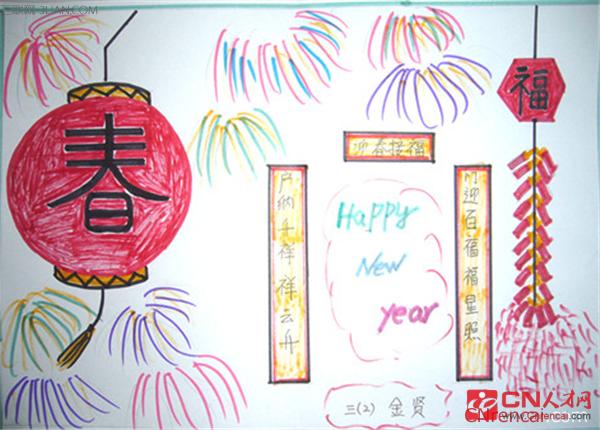 春
福
迎春接福
门迎百福福星照
户纳千祥祥云升
Happy
New
year
三(2) 金贤
CN人才网
CNrencai.com